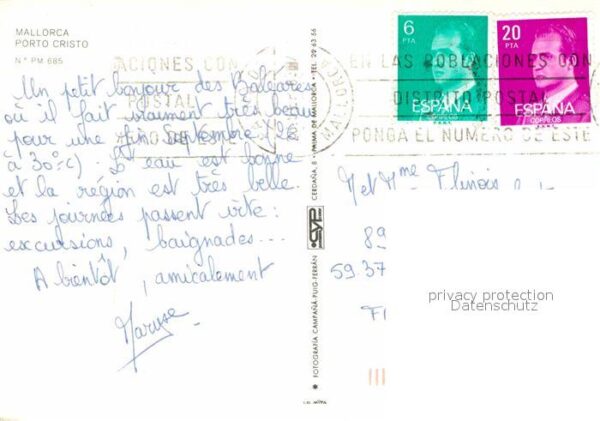 MALLORCA
PORTO CRISTO
N.º PM 685
Un petit bonjour des Baléares
où il fait vraiment très beau
pour une fin septembre (28
à 30°c) L'eau est bonne
et la région est très belle.
Les journées passent vite :
excursions, baignades...
A bientôt, amicalement
Maryse
6
PTA
ESPAÑA
CORREOS
20
PTA
ESPAÑA
CORREOS
MALLORCA
ACIONES CON
POSTAL
ERO DE ESTE
EN LAS POBLACIONES CON
DISTRITO POSTAL
PONGA EL NUMERO DE ESTE
M et Mme Flinois
89
5937
privacy protection
Datenschutz
FOTOGRAFÍA CAMPAÑÁ-PUIG-FERRÁN
CERDAÑA, 8 - PALMA DE MALLORCA - TEL. 29 63 56